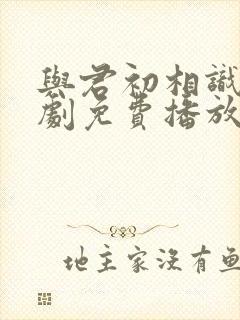 與君初相識
劇免費播放
地主家沒有魚